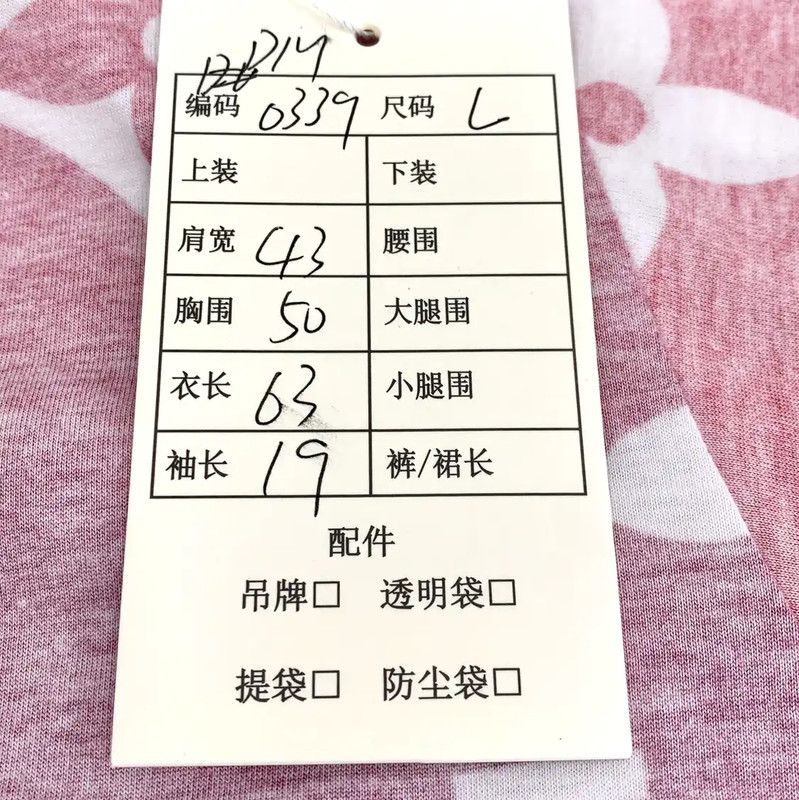 D14
编码 0339 尺码 L
上装 下装
肩宽 43 腰围
胸围 50 大腿围
衣长 63 小腿围
袖长 19 裤/裙长
配件
吊牌□ 透明袋□
提袋□ 防尘袋□